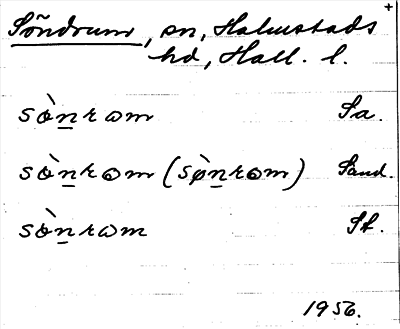 +
Söndrum, sn, Halmstads
hd, Hall. l.
sǿ̀n̲rɷm Sa.
sǿ̀n̲rɷm (sø̀n̲rɷm) Sand.
sǿ̀n̲rɷm St.
1956.